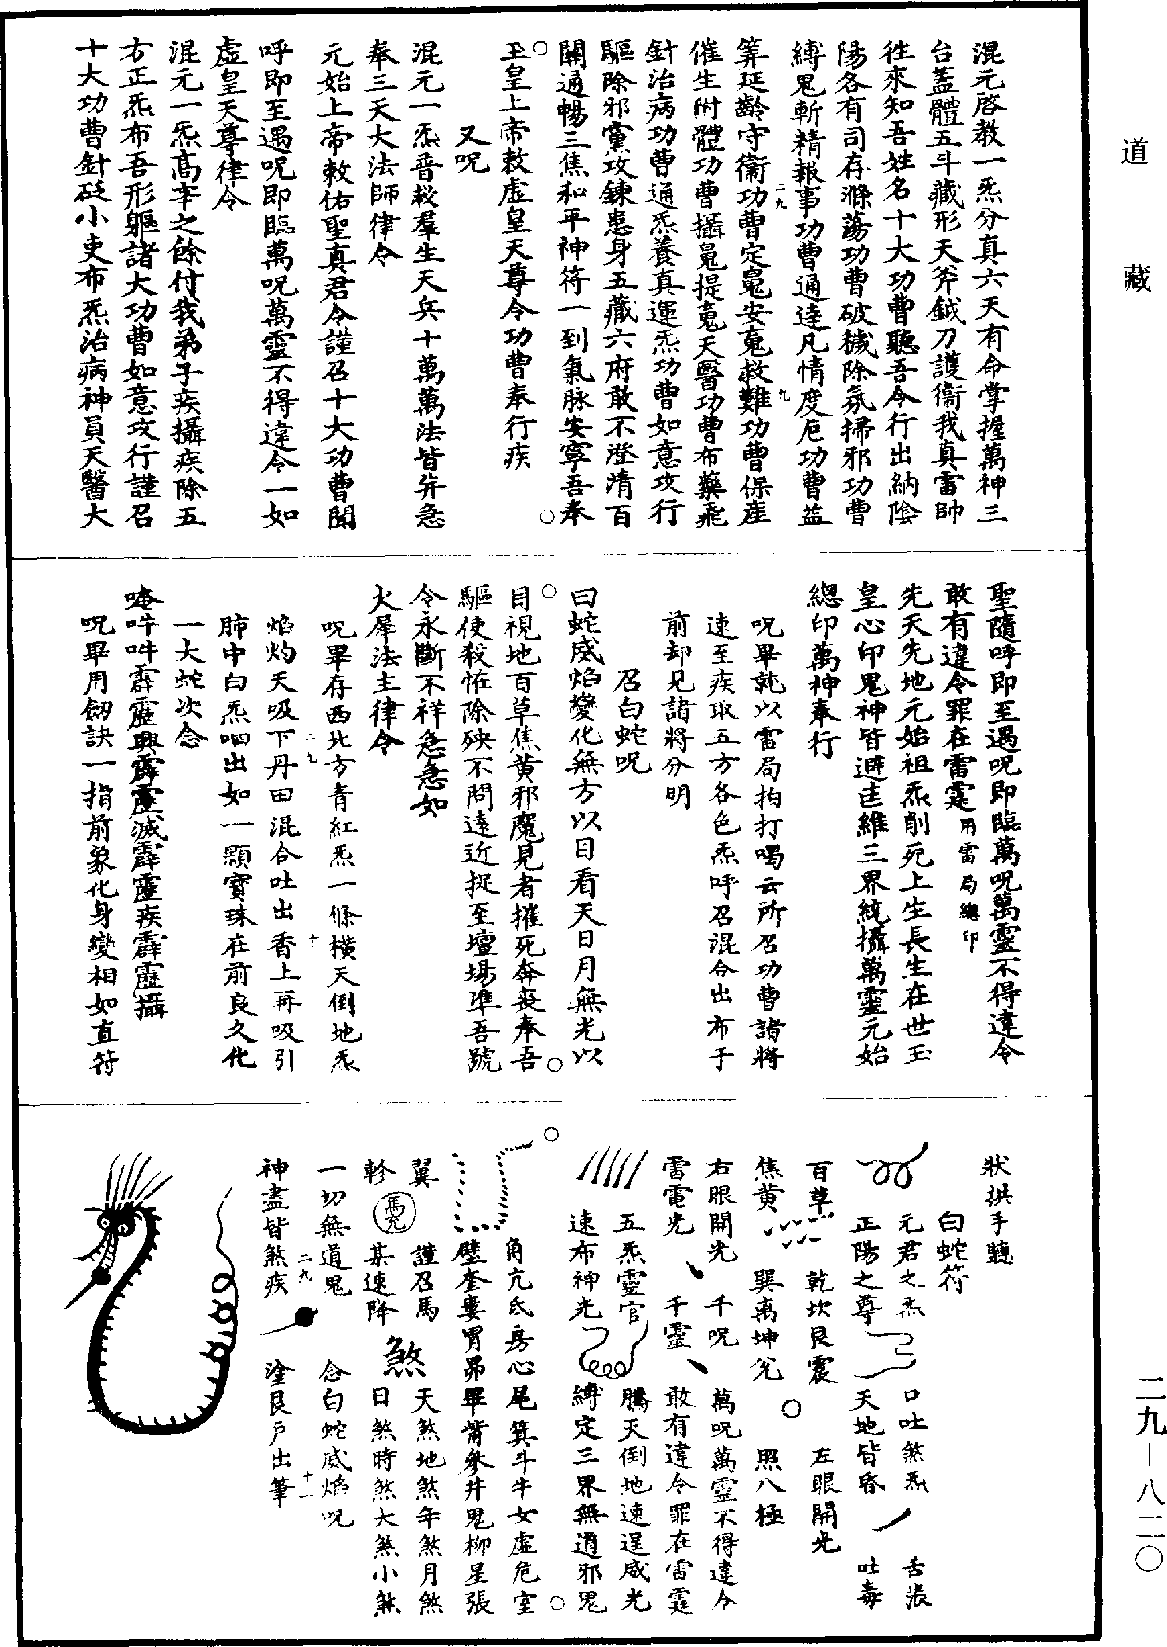 道藏
二九—八二〇
混元啓教一炁分真六天有命掌握萬神三
台蓋體五斗藏形天斧鉞刀護衛我真雷帥
徃來知吾姓名十大功曹聽吾令行出納陰
陽各有司存滌蕩功曹破穢除氛掃邪功曹
縛鬼斬精報事功曹通逹凡情度厄功曹益
筭延齡守衞功曹定䰟安䰟救難功曹保産
催生附體功曹攝䰟提䰟天醫功曹布藥飛
針治病功曹通炁養真運炁功曹如意攻行
驅除邪黨攻鍊患身五藏六府敢不澄清百
關通暢三焦和平神符一到氣脉安寧吾奉
玉皇上帝敕虛皇天尊令功曹奉行疾
又呪
混元一炁普救羣生天兵十萬萬法皆弁急
奉三天大法師律令
元始上帝敕佑聖真君令謹召十大功曹聞
呼即至遇呪即臨萬呪萬靈不得違令一如
虛皇天尊律令
混元一炁高辛之餘付我弟子疾攝疾除五
方正炁布吾形軀諸大功曹如意攻行謹召
十大功曹針砭小吏布炁治病神員天醫大
聖隨呼即至遇呪即臨萬呪萬靈不得違令
敢有違令罪在雷霆用雷局總印
先天先地元始祖炁削死上生長生在世玉
皇心印鬼神皆避圭維三界統攝萬靈元始
總印萬神奉行
呪畢就以雷局拍打喝云所召功曹諸將
速至疾取五方各色炁呼召混合出布于
前却見諸將分明
召白蛇呪
曰蛇威焰變化無方以目看天日月無光以
目視地百草焦黄邪魔見者摧死奔丧奉吾
驅使殺恠除殃不問遠近捉至壇場準吾號
令永斷不祥急急如
火犀法主律令
呪畢存西北方青紅炁一條橫天倒地炁
焰灼天吸下丹田混合吐出香上再吸引
肺中白炁呬出如一顆寶珠在前良久化
一大蛇次念
唵吽吽霹靂興霹靂滅霹靂疾霹靂攝
呪畢用劒訣一指前象化身變相如直符
狀拱手聽
白蛇符
元君之炁 口吐煞炁 舌㳬
正陽之尊 天地皆昏 吐毒
百草 乾坎艮震 左眼開光
焦黄 巽离坤兌 照八極
右眼開光 千呪 萬呪萬靈不得違令
雷電光 千靈 敢有違令罪在雷霆
五炁靈官 騰天倒地速逞威光
速布神光 縛定三界無道邪鬼
角亢氐房心尾箕斗牛女虛危室
壁奎婁胃昴畢觜參井鬼柳星張
翼 謹召馬 天煞地煞年煞月煞
軫 馬充 某速降 煞 日煞時煞大煞小煞
一切無道鬼 念白蛇威焰呪
神盡皆煞疾 塗艮戶出筆